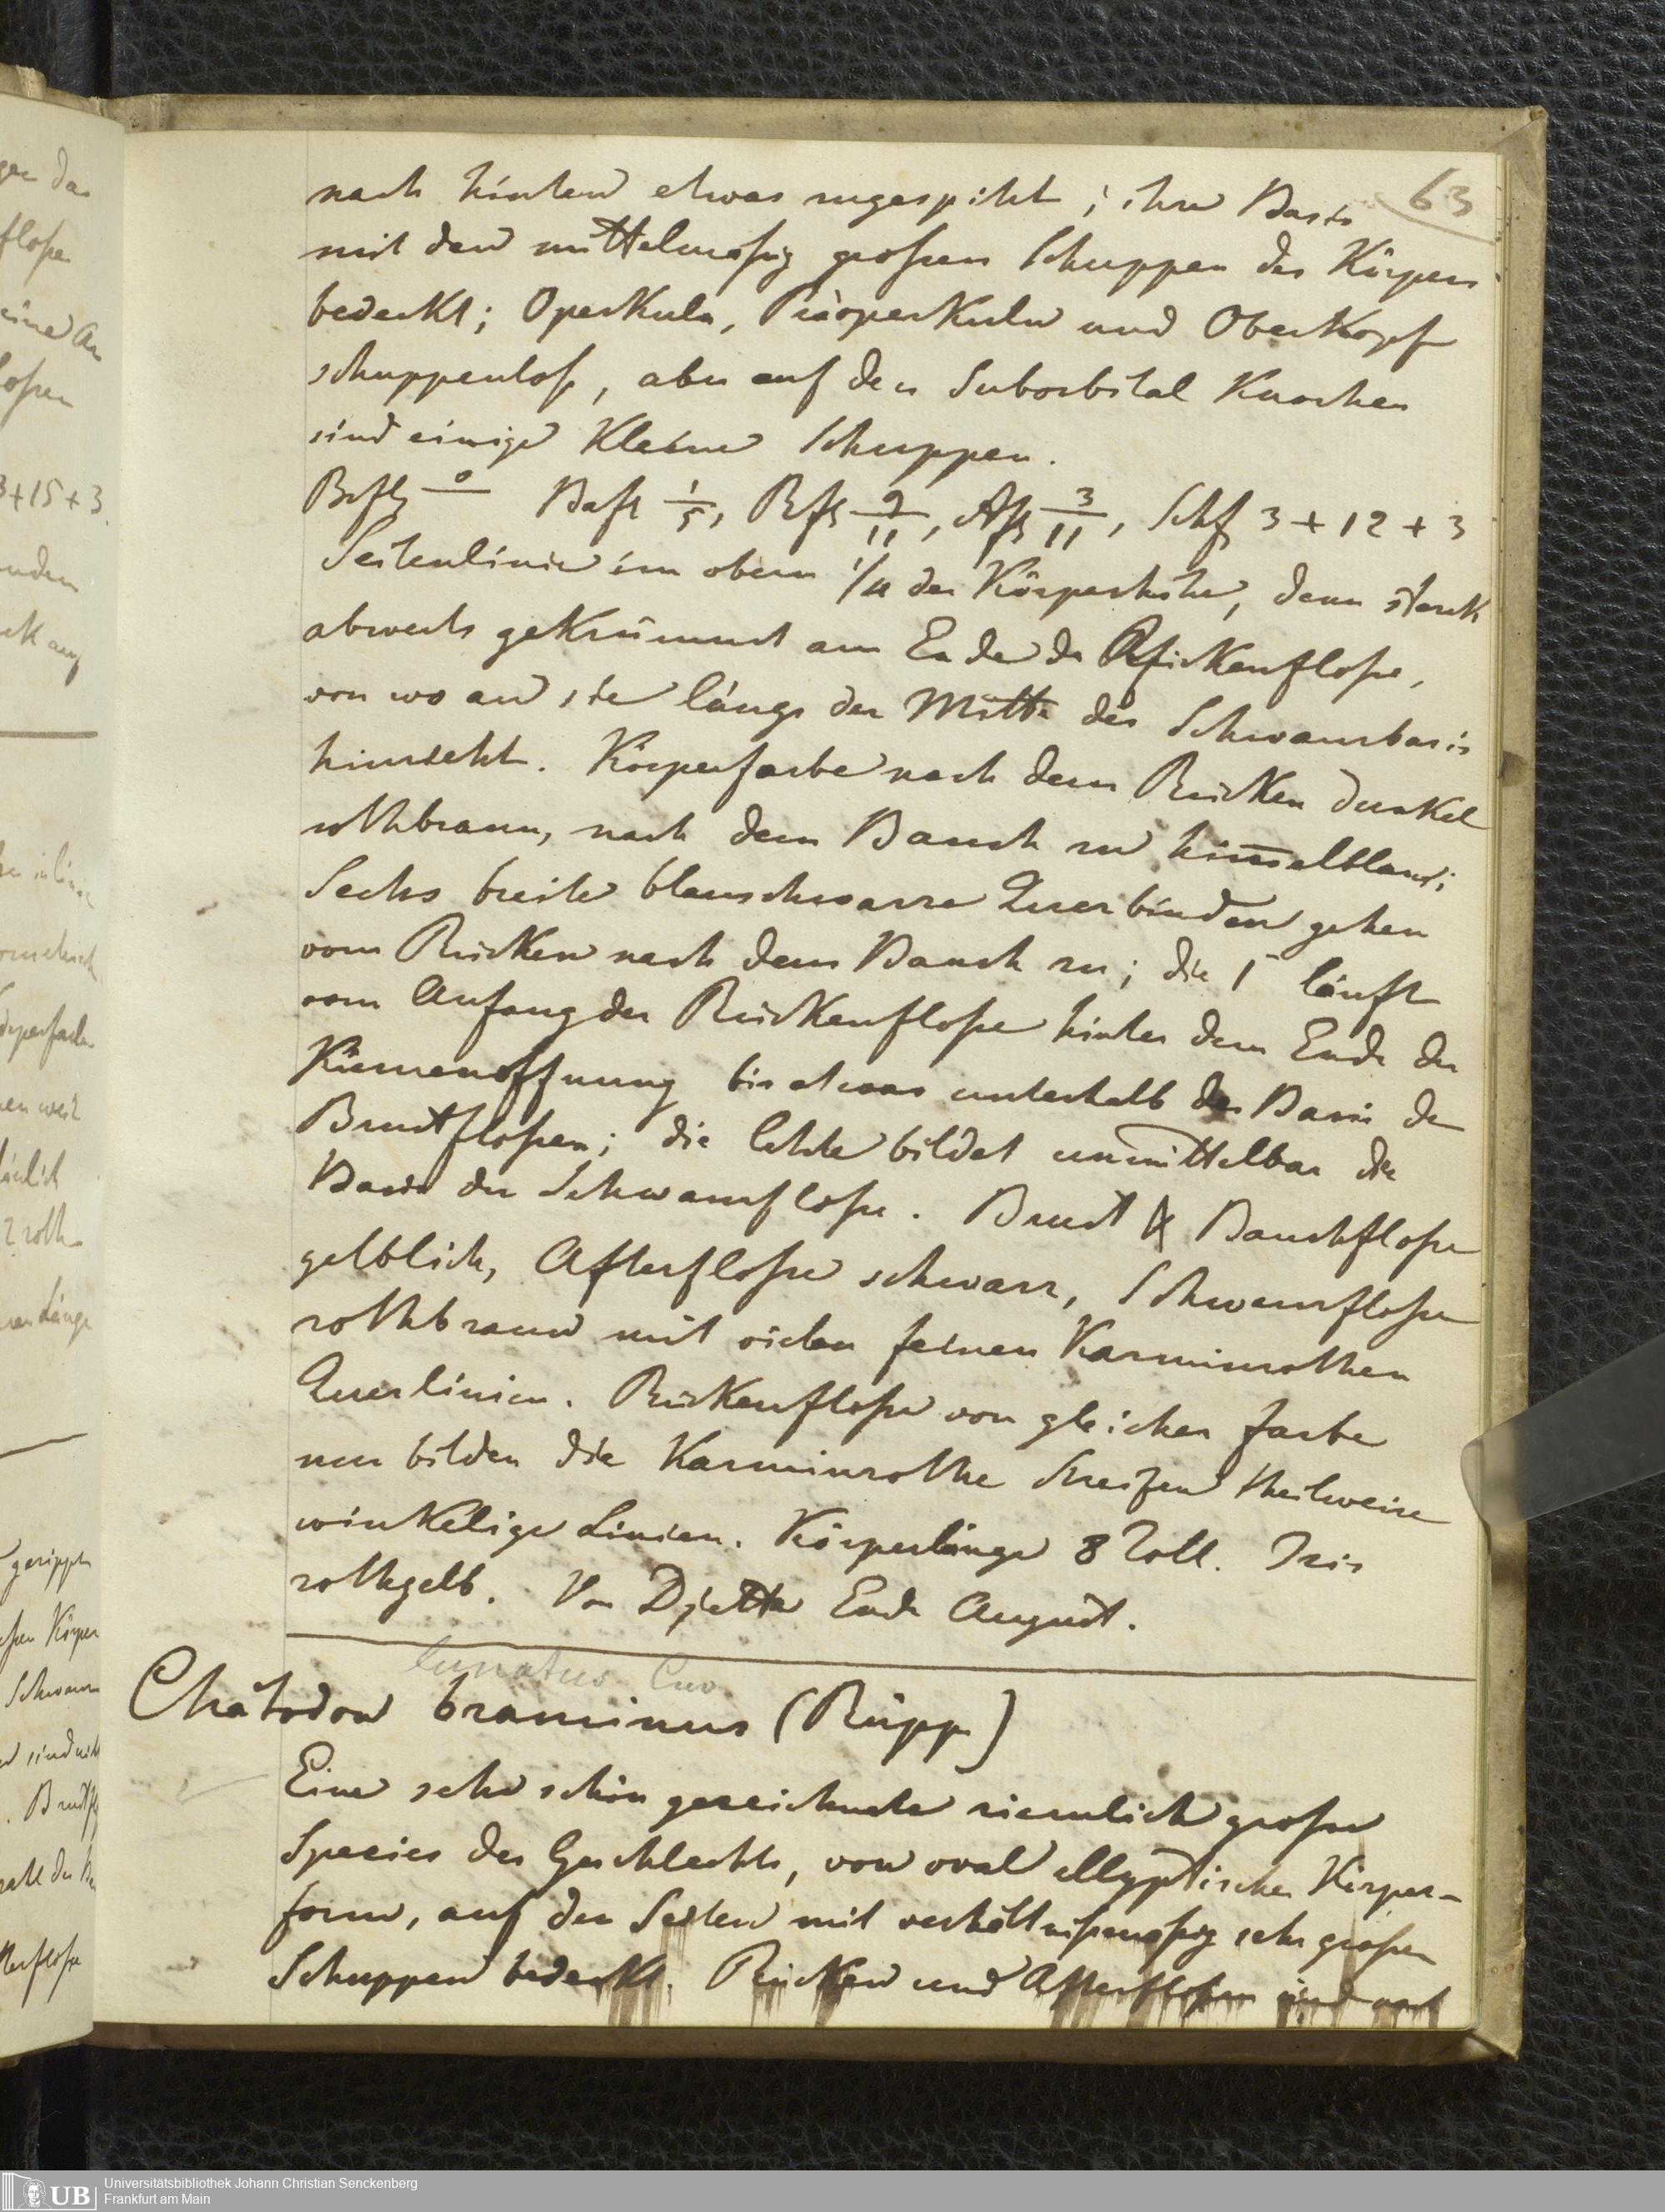 63
nach hinten etwas zugespitzt; ihre Basis
mit den mittelmäsig grosen Schuppen des Körpers
bedeckt; Operkula, Präoperkula und Oberkopf
schuppenlos, aber auf den Suborbital Knochen
sind einige kleine Schuppen.
Brfl 0/ Bafl 1/5, Rfl 9/11, Afl 3/11, Schfl 3 + 12 + 3
Seitenlinie im obern 1/4 der Körperhöhe, dann stark
abwerts gekrümmt am Ende der Rückenfloße,
von wo an sie längs der Mitte der Schwanzbasis
hinzieht. Körperfarbe nach dem Rücken dunkel
rothbraun, nach dem Bauch zu him̅elblau;
Sechs breite blauschwarze Querbinden gehen
vom Rücken nach dem Bauch zu; die 1 läuft
vom Anfang der Rückenfloße hinter dem Ende der
Kiemenöffnung bis etwas unterhalb der Basis der
Brustfloßen; die letzte bildet unmittelbar die
Basis der Schwanzfloße. Brust & Bauchfloße
gelblich, Afterfloße schwarz, Schwanzfloße
rothbraun mit vielen feinen Karminrothen
Querlinien. Rückenfloße von gleicher farbe
nur bilden die Karminrothe Streifen theilweise
winkelige Linien. Körperlänge 8 Zoll. Iris
rothgelb. Von Djetta Ende August.
lunatus Cuv
Chätodon braminus (Rüpp)
Eine sehr schön gezeichnete ziemlich große
Species des Geschlechts, von oval ellyptischer Körper-
form, auf den Seiten mit verhältnißmäßig sehr großen
Schuppen bedeckt. Rücken und Afterfloßen sind nach